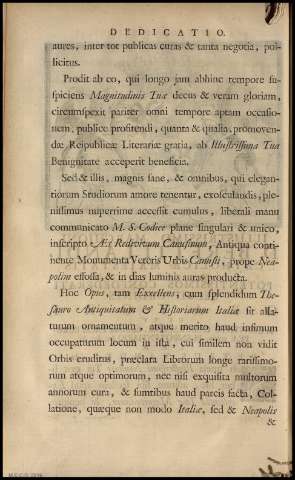 DEDICATIO.
aures, inter tot publicas curas & tanta negotia, pol-
licitus.
Prodit ab eo, qui longo jam abhinc tempore su-
spiciens Magnitudinis Tuæ decus & veram gloriam,
circumspexit pariter omni tempore aptam occasio-
nem, publice profitendi, quanta & qualia, promoven-
dæ Reipublicæ Literariæ gratia, ab Illustrissima Tua
Benignitate acceperit beneficia.
Sed & illis, magnis sane, & omnibus, qui elegan-
tiorum Studiorum amore tenentur, exosculandis, ple-
nissimus nuperrime accessit cumulus, liberali manu
communicato M. S. Codice plane singulari & unico,
inscripto Æs Redivivum Canusinum, Antiqua conti-
nente Monumenta Veteris Urbis Canusii, prope Nea-
polim effossa, & in dias luminis auras producta.
Hoc Opus, tam Excellens, cum splendidum The-
sauro Antiquitatum & Historiarum Italiæ sit alla-
turum ornamentum, atque merito haud infimum
occupaturum locum in ista, cui similem non vidit
Orbis eruditus, præclara Librorum longe rarissimo-
rum atque optimorum, nec nisi exquisita multorum
annorum cura, & sumtibus haud parcis facta, Col-
latione, quæque non modo Italiæ, sed & Neapolis
&